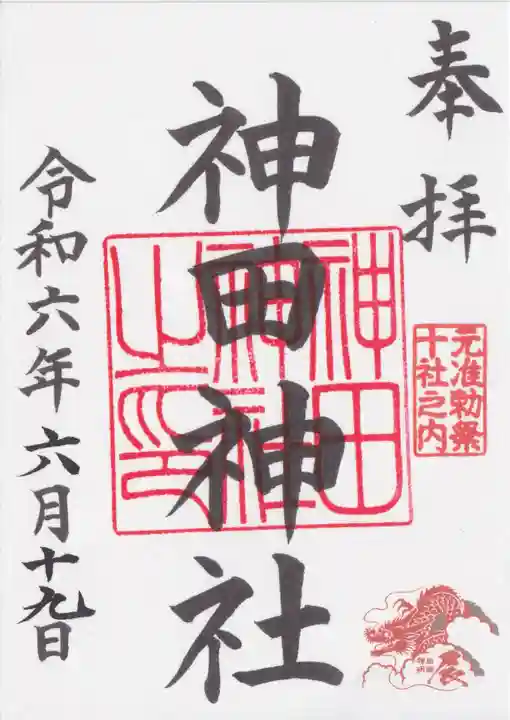 奉拝
元准勅祭
十社之内
神田神社
神田
神社
之印
令和六年六月十九日
辰